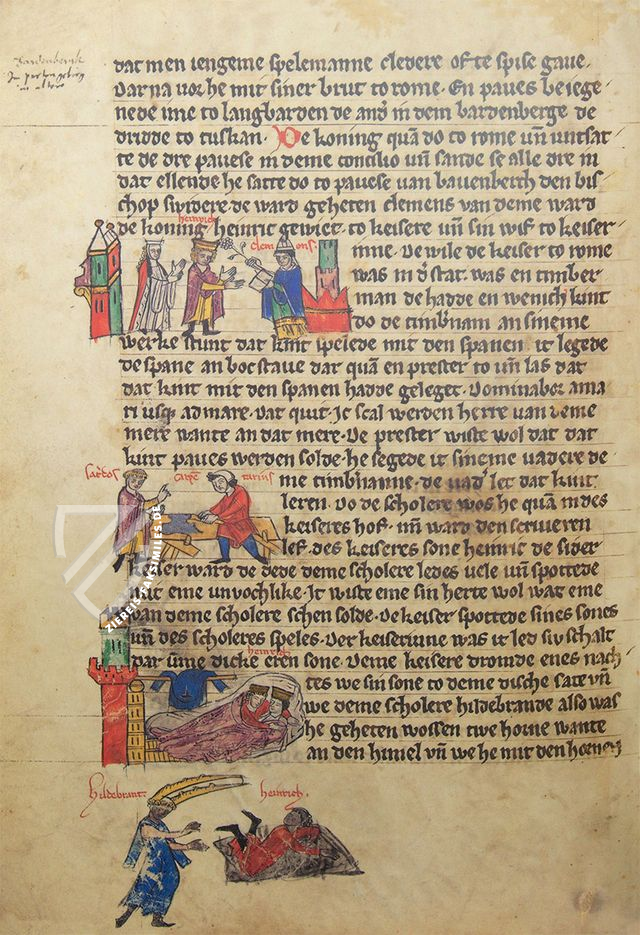 Bardenberch
dat men iengeme spelemanne cledere ofte spise gaue.
Dar na vor he mit siner brut to rome. En paues beiege
nede ime to langbarden de and in dem bardenberge de
dridde to tuskan. De koning quā do to rome vn̄ untsat
te de dre pauese in deme concilio vn̄ sande se alle dre in
dat ellende he satte do to pauese van bauenberch den bis
chop siuidere de ward geheten clemens van deme ward
heinrich
de koning heinric gewiet to keisere vn̄ sin wif to keiser
clem ons.
inne. De wile de keiser to rome
was in d stat was en timber
man de hadde en wenich kint
do de timb̄man an sineme
werke stunt dat kint spelede mit den spanen it legede
de spane an bocstaue dat quā en prester to vn̄ las dat
dat kint mit den spanen hadde geleget. Dominabor ama
ri usq̢ ad mare. Dat quit. Ic scal werden herre van deme
mere wante an dat mere. De prester wiste wol dat dat
kint paues werden solde. he segede it sineme vadere de
sacdos carpe tarius
me timb̄manne. de vad let dat kint
leren. Do de scholere wos he quam in des
keiseres hof. vn̄ ward den scriueren
lef. des keiseres sone heinric de sider
keiser ward de dede deme scholere ledes vele vn̄ spottede
mit eme unvochlike. It wiste eme sin herte wol wat eme
van deme scholere schen solde. De keiser spottede sines sones
vn̄ des scholeres speles. Der keiserinne was it led siv schalt
dar umme dicke eren sone. Deme keisere dromde enes nach
heinrich
tes we sin sone to deme dische sate vn̄
we deme scholere hildebrande also was
he geheten wossen twe horne wante
an den himel vn̄ we he mit den hornen
Hildebrant. heinrich.
ZIEREIS-FAKSIMILES.DE